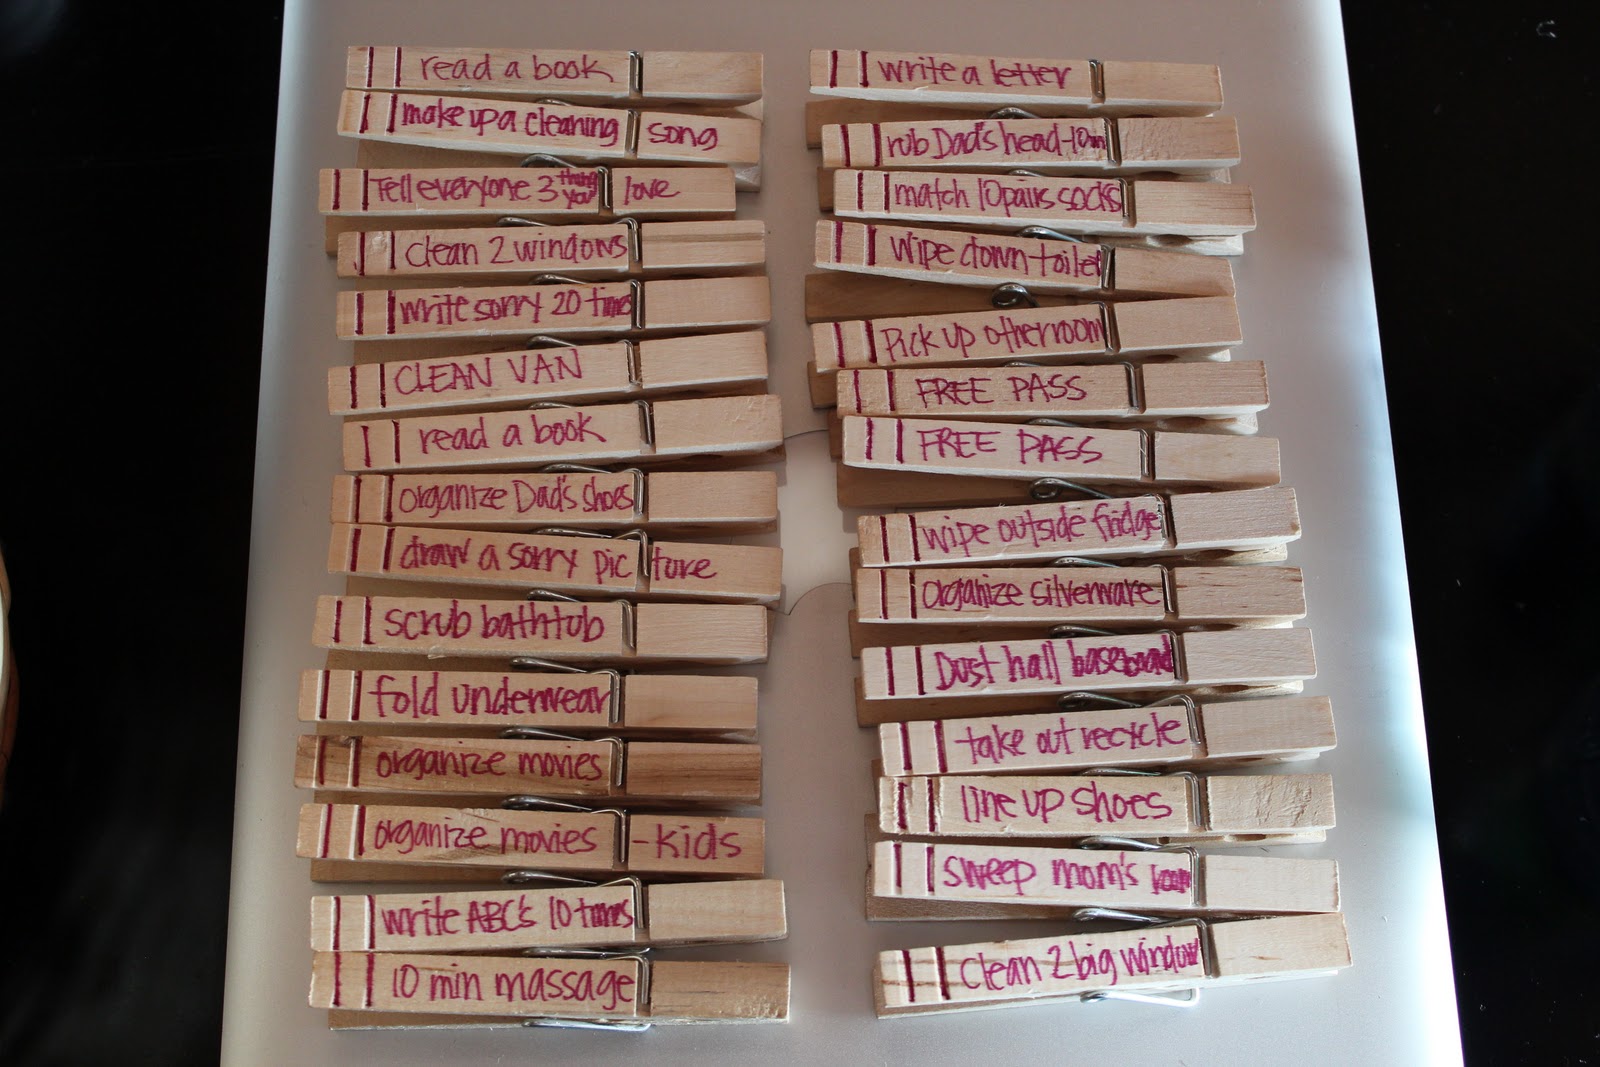 read a book
make up a cleaning song
Tell everyone 3 things you love
clean 2 windows
write sorry 20 times
CLEAN VAN
read a book
organize Dad's shoes
draw a sorry picture
scrub bathtub
fold underwear
organize movies
organize movies - kids
write ABC's 10 times
10 min massage
write a letter
rub Dad's head-10m
match 10 pairs socks
wipe down toilet
Pick up other room
FREE PASS
FREE PASS
wipe outside fridge
organize silverware
Dust hall baseboard
take out recycle
line up shoes
sweep mom's room
Clean 2 big window